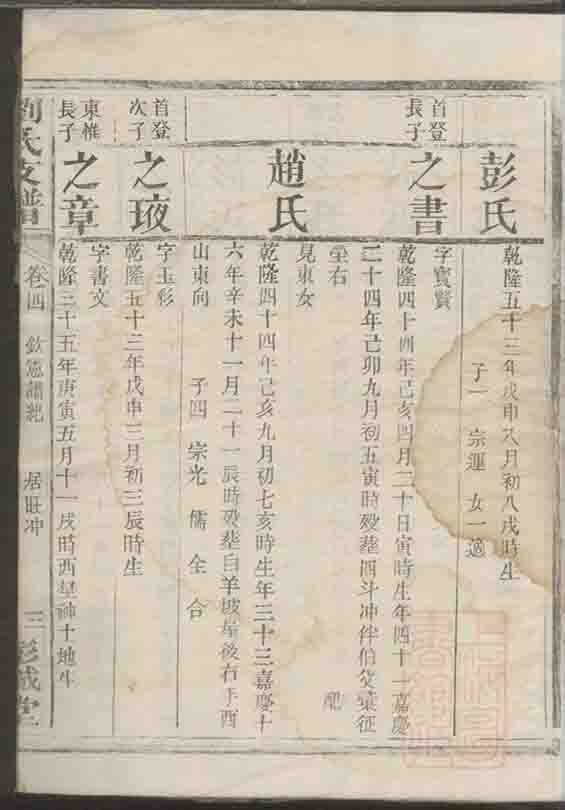 彭氏
乾隆五十三年戊申八月初八戌時生
子一 宗運 女一適
首登長子
之書
字寶賢
乾隆四十四年己亥四月二十日寅時生年四十一嘉慶
二十四年己卯九月初五寅時歿葬四斗冲伴伯父東征
塋右 配
見東女
趙氏
乾隆四十四年己亥九月初七亥時生年三十三嘉慶十
六年辛未十一月二十一辰時歿葬白羊坡屋後右手酉
山東向 子四 宗光 儒 全 合
首登次子
之珳
字玉彩
乾隆五十三年戊申三月初三辰時生
東惟長子
之章
字書文
乾隆三十五年庚寅五月十一戌時西皇神土地生
劉氏支譜
卷四
居旺冲
三
彭城堂